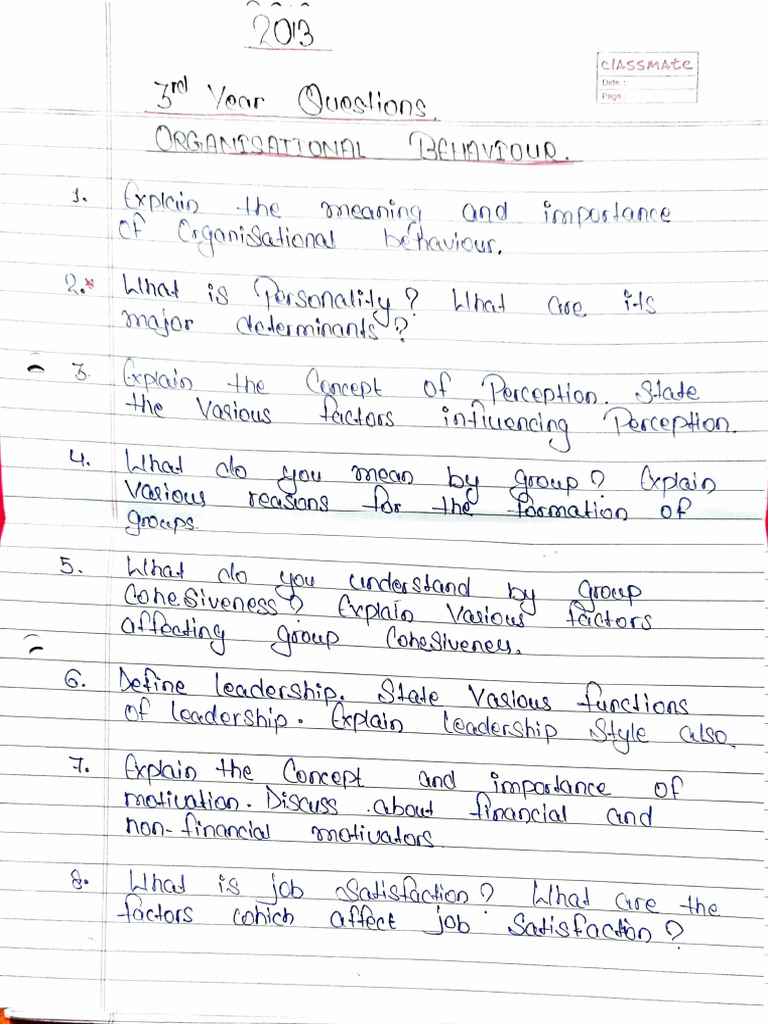 2013
classmate
Date :
Page :
3rd Year Questions.
ORGANISATIONAL BEHAVIOUR.
1. Explain the meaning and importance
of Organisational behaviour.
2.* What is Personality? What are its
major determinants?
3. Explain the Concept of Perception. State
the various factors influencing Perception.
4. What do you mean by group? Explain
various reasons for the formation of
groups.
5. What do you understand by group
Cohesiveness? Explain various factors
affecting group Cohesiveness.
6. Define leadership. State various functions
of leadership. Explain leadership Style also.
7. Explain the Concept and importance of
motivation. Discuss about financial and
non-financial motivators
8. What is job satisfaction? What are the
factors which affect job satisfaction?